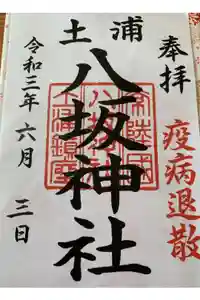 奉拝
疫病退散
土浦
八坂神社
令和三年六月三日